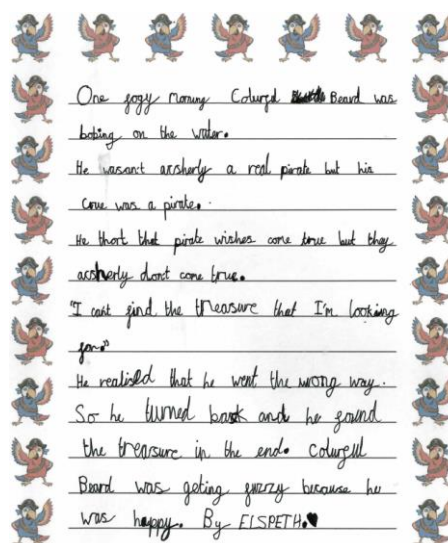 One fogy morning Colurgd Beard was
bobing on the water.
He wasan't arsherly a real pirate but his
crue was a pirate.
He thort that pirate wishes come true but they
arsherly don't come true.
"I can't find the treasure that I'm looking
for."
He realised that he went the wrong way.
So he turned back and he found
the treasure in the end. Colurgul
Beard was geting fuzzy because he
was happy. By ELSPETH.